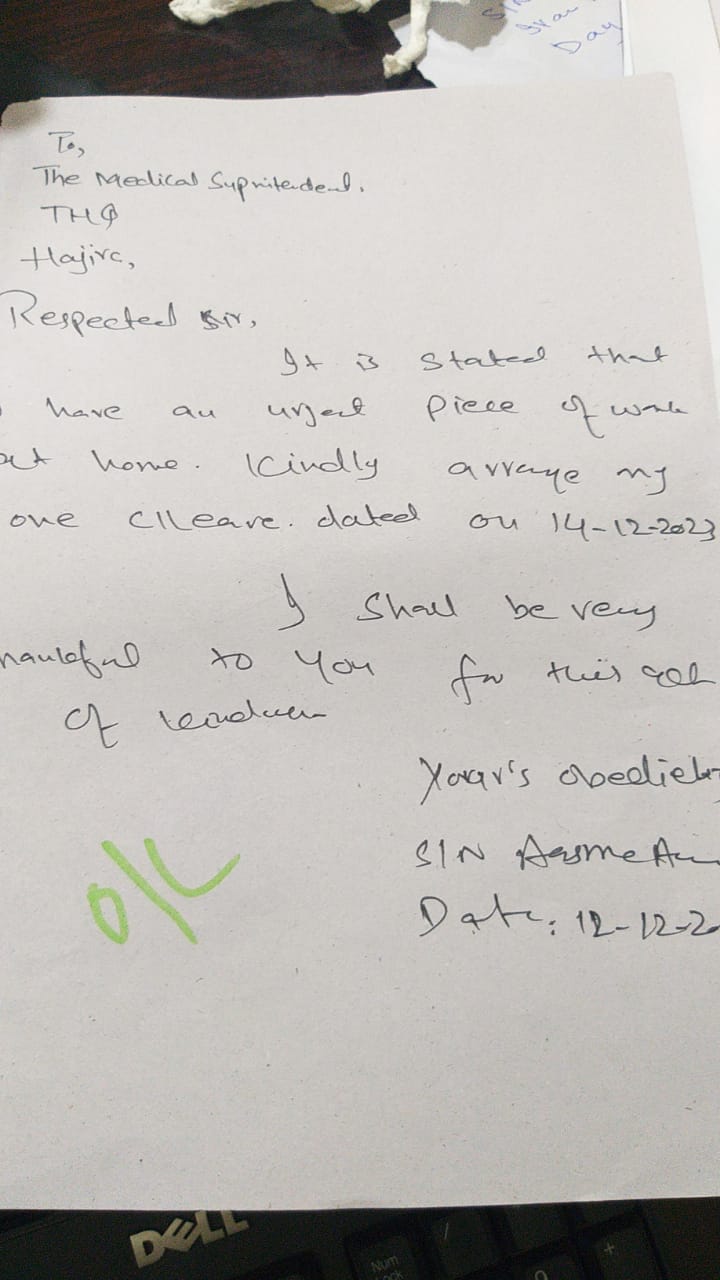 SIN
Day
To,
The Medical Supritendent.
THQ
Hajira,
Respected Sir,
It is stated that
have an urgent piece of work
at home. Kindly arrange my
one C/Leave. dated on 14-12-2023
I shall be very
hankful to you for this act
of kindness
Your's obedient
S/N Aasme
Date: 12-12-2
O/L
DELL
Num
/
+